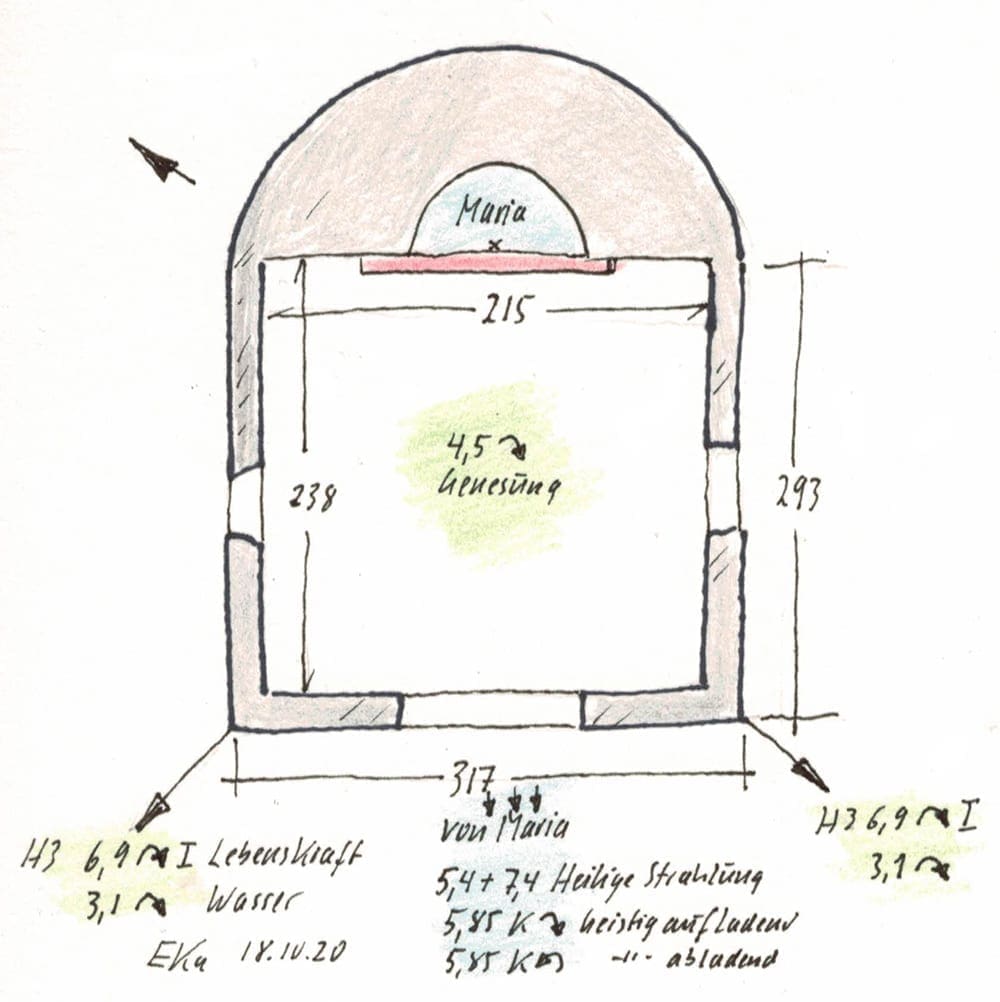 Maria
×
215
4,5 ↷
Genesūng
238
293
317
↓ ↓ ↓
von Maria
H3 6,9 ↷ I Lebenskraft
3,1 ↷ Wasser
EKu 18.10.20
5,4 + 7,4 Heilige Strahlūng
5,85 K ↷ Geistig aufladend
5,85 K ↶ -"- abladend
H3 6,9 ↷ I
3,1 ↷